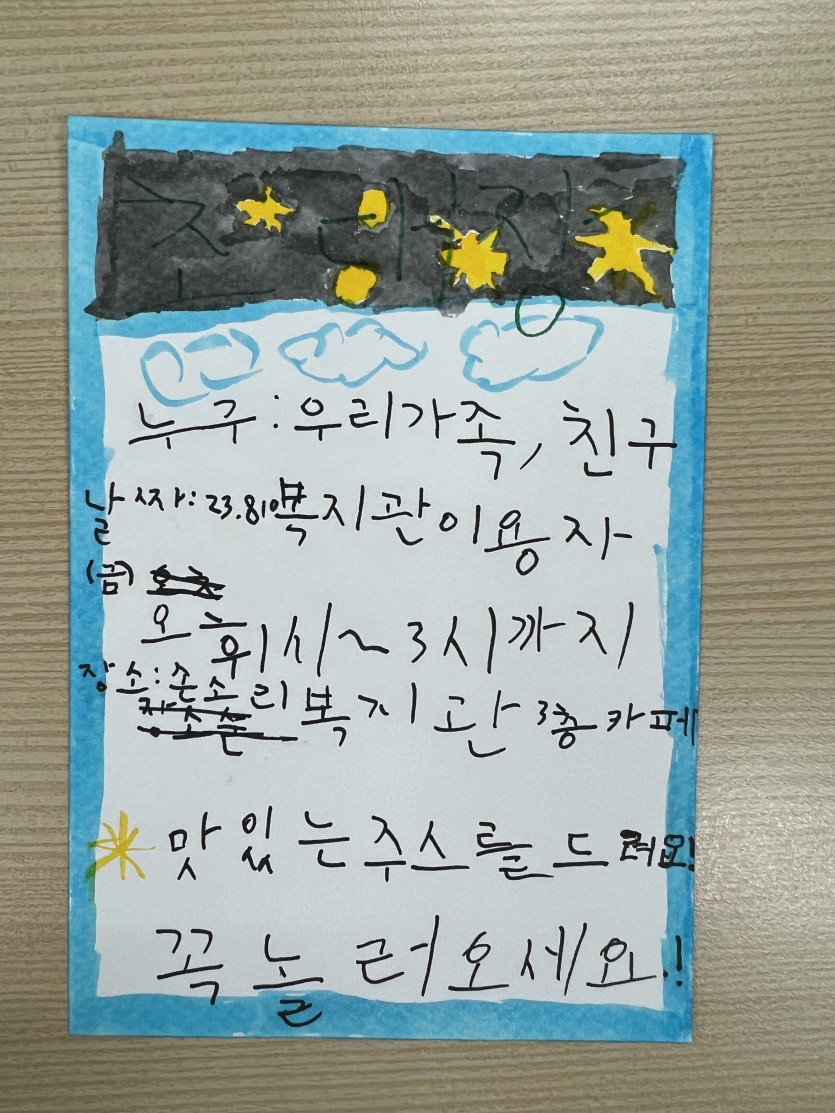 초대장
누구: 우리가족, 친구
날짜: 23.8.10 복지관이용자
(금)
오후1시~3시까지
장소: 손소리복지관 3층 카페
맛있는주스를드려요!
꼭 놀러오세요.!